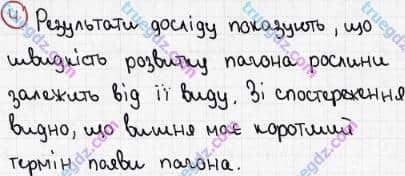 4. Результати досліду показують, що
швидкість розвитку пагона рослини
залежить від її виду. Зі спостереження
видно, що вишня має коротший
термін появи пагона.